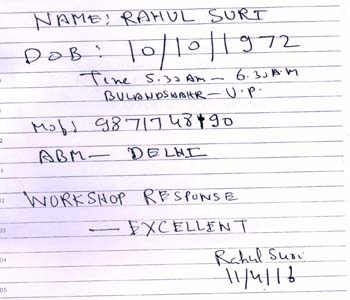 NAME: RAHUL SURI
DOB: 10/10/1972
Time 5.30AM – 6.30AM
BULANDSHAHR – U.P.
Mob: 9871748490
ABM – DELHI
WORKSHOP RESPONSE
— EXCELLENT
Rahul Suri
11/4/16